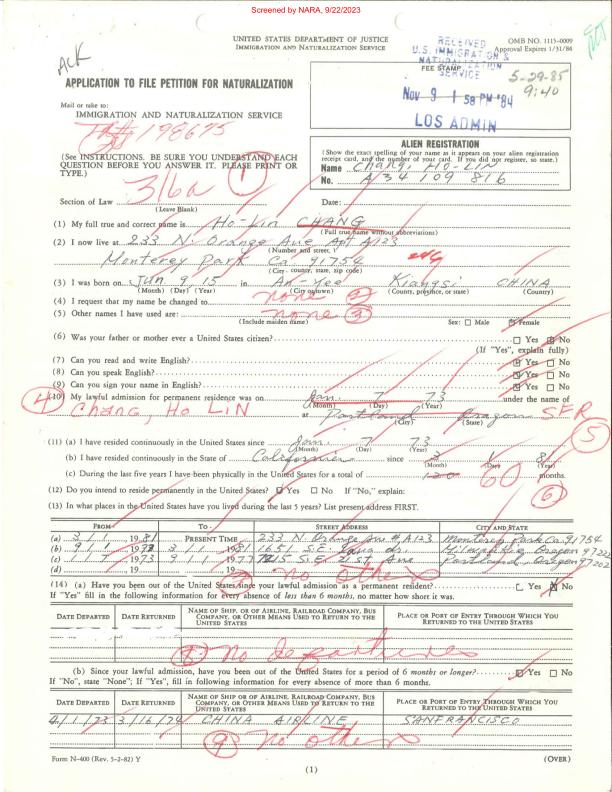 Screened by NARA, 9/22/2023
UNITED STATES DEPARTMENT OF JUSTICE
IMMIGRATION AND NATURALIZATION SERVICE
OMB NO. 1115-0009
Approval Expires 1/31/84
ACK
RECEIVED
U.S. IMMIGRATION &
NATURALIZATION
SERVICE
FEE STAMP
5-29-85
9:40
Nov 9 1 58 PM '84
LOS ADMIN
APPLICATION TO FILE PETITION FOR NATURALIZATION
Mail or take to:
IMMIGRATION AND NATURALIZATION SERVICE
198675
(See INSTRUCTIONS. BE SURE YOU UNDERSTAND EACH
QUESTION BEFORE YOU ANSWER IT. PLEASE PRINT OR
TYPE.)
1
ALIEN REGISTRATION
(Show the exact spelling of your name as it appears on your alien registration
receipt card, and the number of your card. If you did not register, so state.)
Name Chang, HO-LIN
No. A34 109 816
Section of Law 316a
(Leave Blank)
Date:
(1) My full true and correct name is Ho-Lin CHANG
(Full true name without abbreviations)
(2) I now live at 233 N. Orange Ave Apt A123
(Number and street,)
Monterey Park Ca. 91754
(City, county, state, zip code)
(3) I was born on Jun 9, 15 in An-Yee Kiangsi CHINA
(Month) (Day) (Year) (City or town) (County, province or state) (Country)
(4) I request that my name be changed to none 2
(5) Other names I have used are: none 3
(Include maiden name) Sex: Male Female
(6) Was your father or mother ever a United States citizen? Yes No
(If "Yes", explain fully)
(7) Can you read and write English? Yes No
(8) Can you speak English? Yes No
(9) Can you sign your name in English? Yes No
4 (10) My lawful admission for permanent residence was on Jan. 7 73 under the name of
(Month) (Day) (Year)
Chang, Ho LIN at Portland Oregon SFR
(City) (State)
5
(11) (a) I have resided continuously in the United States since Jan. 7 73
(Month) (Day) (Year)
(b) I have resided continuously in the State of California since 3 1 81
(Month) (Day) (Year)
(c) During the last five years I have been physically in the United States for a total of 120 60 months.
6
(12) Do you intend to reside permanently in the United States? Yes No If "No," explain:
(13) In what places in the United States have you lived during the last 5 years? List present address FIRST.
FROM- TO- STREET ADDRESS CITY AND STATE
(a) 3 1, 1981 PRESENT TIME 233 N. Orange Ave # A123 Monterey Park Ca. 91754
(b) 9 1, 19 3 1, 1981 1651 S.E. Milwaukie, Oregon 97222
(c) 1 7, 1973 9 1, 1977 S.E. 21st Ave Portland, Oregon 97202
(d) , 19 , 19 7 no others
(14) (a) Have you been out of the United States since your lawful admission as a permanent resident? Yes No
If "Yes" fill in the following information for every absence of less than 6 months, no matter how short it was.
DATE DEPARTED DATE RETURNED NAME OF SHIP, OR OF AIRLINE, RAILROAD COMPANY, BUS COMPANY, OR OTHER MEANS USED TO RETURN TO THE UNITED STATES PLACE OR PORT OF ENTRY THROUGH WHICH YOU RETURNED TO THE UNITED STATES
8 No departures
(b) Since your lawful admission, have you been out of the United States for a period of 6 months or longer? Yes No
If "No", state "None"; If "Yes", fill in following information for every absence of more than 6 months.
DATE DEPARTED DATE RETURNED NAME OF SHIP, OR OF AIRLINE, RAILROAD COMPANY, BUS COMPANY, OR OTHER MEANS USED TO RETURN TO THE UNITED STATES PLACE OR PORT OF ENTRY THROUGH WHICH YOU RETURNED TO THE UNITED STATES
4/1/73 3/16/74 CHINA AIRLINE SANFRANCISCO
9 no others
Form N-400 (Rev. 5-2-82) Y
(OVER)
(1)